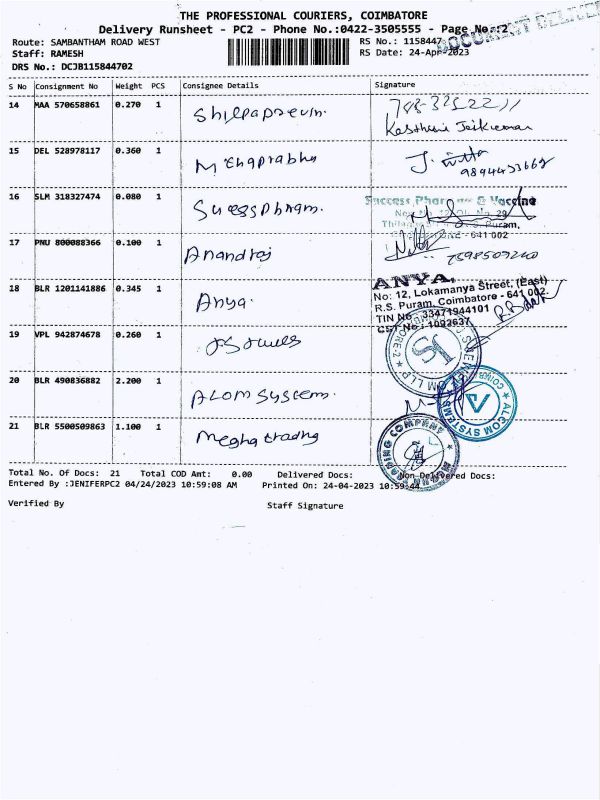 THE PROFESSIONAL COURIERS, COIMBATORE
Delivery Runsheet - PC2 - Phone No.:0422-3505555 - Page No.:2
DOCUMENT DELIVER
Route: SAMBANTHAM ROAD WEST RS No.: 1158447
Staff: RAMESH RS Date: 24-Apr-2023
DRS No.: DCJB115844702
S No Consignment No Weight PCS Consignee Details Signature
14 MAA 570658861 0.270 1
15 DEL 528978117 0.360 1
16 SLM 318327474 0.080 1
Success Pharma & Vaccine
Puram,
- 641 002
17 PNU 800088366 0.100 1 Anandraj
18 BLR 1201141886 0.345 1 Anya.
ANYA,
No: 12, Lokamanya Street, (East)
R.S. Puram, Coimbatore - 641 002.
TIN No : 33471944101
CST No : 1092637
19 VPL 942874678 0.260 1
20 BLR 490836882 2.200 1 ALOM SYSTEM.
ALCOM SYSTEMS
21 BLR 5500509863 1.100 1 Megha trading
TRADING COMPANY
Total No. Of Docs: 21 Total COD Amt: 0.00 Delivered Docs: Non-Delivered Docs:
Entered By :JENIFERPC2 04/24/2023 10:59:08 AM Printed On: 24-04-2023 10:59:44
Verified By Staff Signature